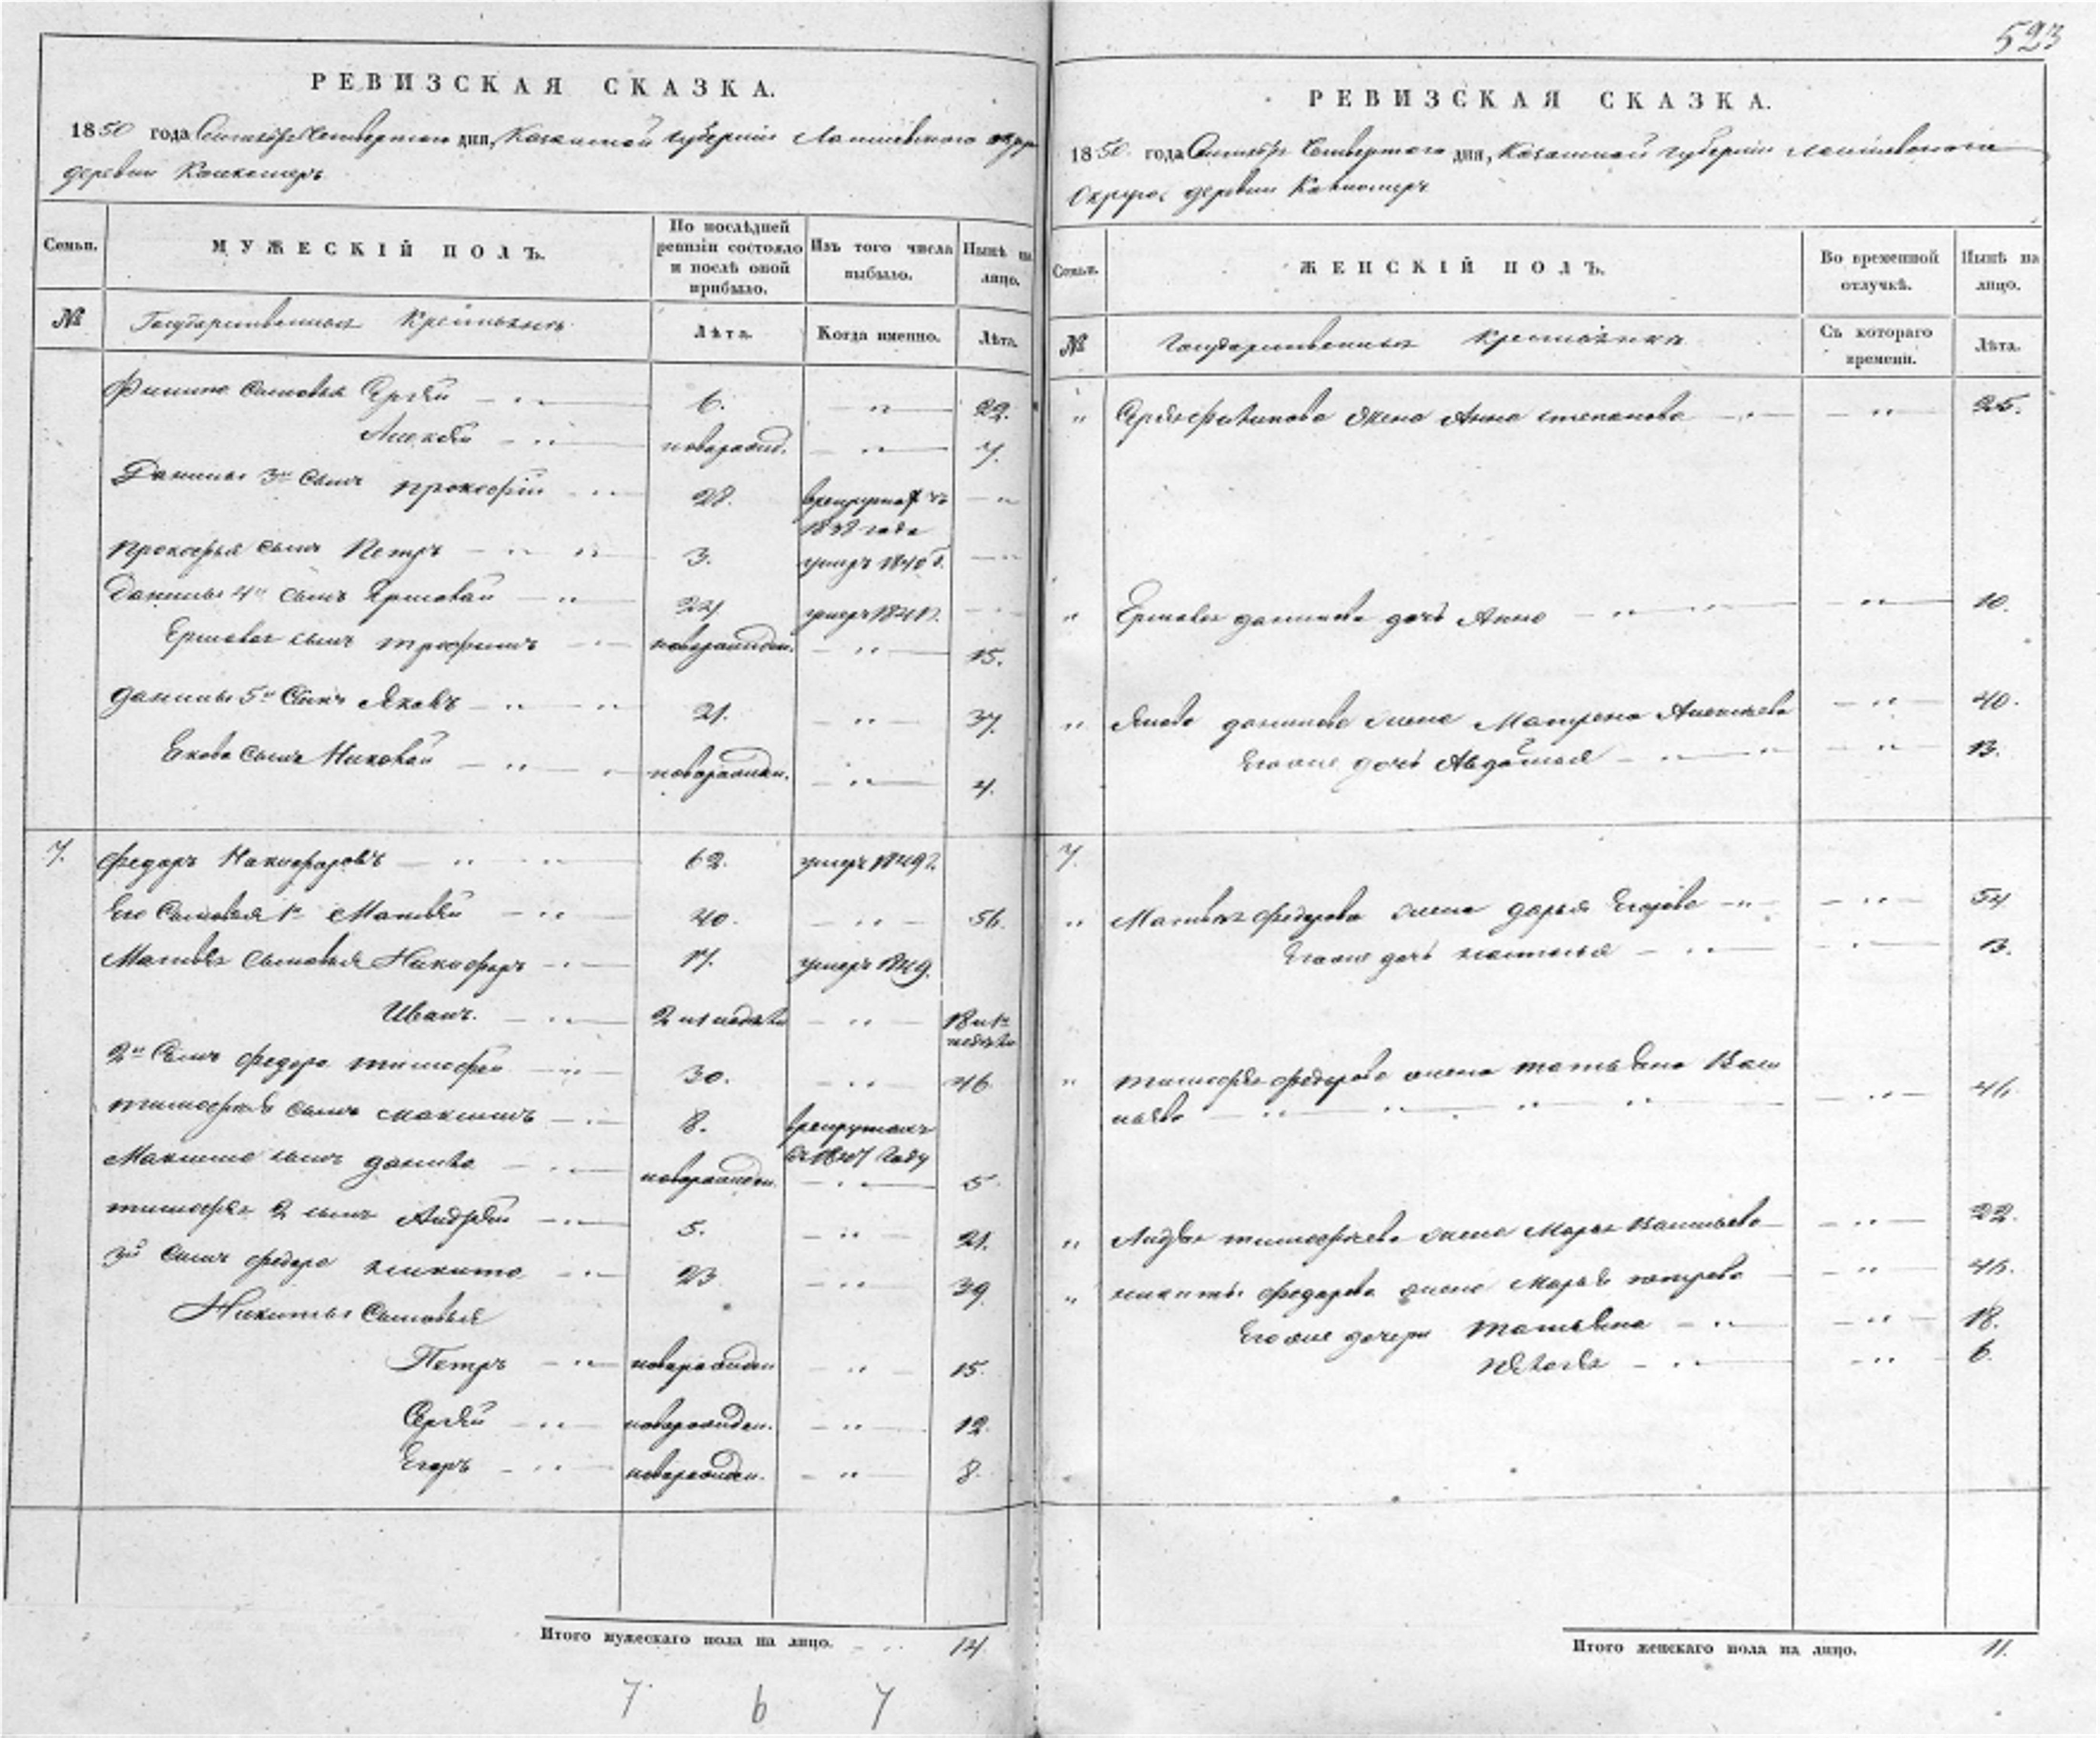 523
РЕВИЗСКАЯ СКАЗКА.
1850 года Сентября Четвертого дня, Казанской губернии Лаишевского округа
деревни
Семьи. МУЖЕСКІЙ ПОЛЪ. По послѣдней ревизіи состояло и послѣ оной прибыло. Изъ того числа выбыло. Нынѣ на лицо.
№ Государственныхъ Крестьянъ Лѣта. Когда именно. Лѣта.
Филипа сыновья Сергѣй — " — 6. — " — 22.
Алексѣй — " — новорожд. — " — 7.
Данилы 3й сынъ Прокофій — " 28. в рекрутах съ — "
1838 года
Прокофья сынъ Петръ — " " 3. умеръ 1840 г. — "
Данилы 4й сынъ Ермолай — " — 24 умеръ — "
Ермолая сынъ Трофимъ — " новорожден. — " — 15.
Данилы 5й Сынъ Яковъ — " — " 21. — " — 37.
Якова сынъ Николай — " — новорожден. — " — 4.
7. Федоръ Никифоровъ — " — " 62. умеръ 1849 г.
Его Сыновья 1й Матвѣй — " — 40. — " — 56.
Матвѣя сыновья Никифоръ — " — 17. умеръ 1849.
Иванъ. — " — 2 и 1 недѣли — " — 18 и 1
недѣли
2й Сынъ Федора Тимофей — " — 30. — " — 46
Тимофея сынъ Максимъ — " — 8. в рекрутахъ
въ году
Максима сынъ Данила — " — новорожден. — " — 5
Тимофея 2 сынъ Андрей — " — 5. — " — 21.
3й Сынъ Федора Никита — " — 23 — " — 39.
Никиты Сыновья
Петръ — " — новорожден — " — 15.
Сергѣй — " — новорожден. — " — 12.
Егоръ — " — новорожден. — " — 8.
Итого мужескаго пола на лицо. — " 14
7 6 7
РЕВИЗСКАЯ СКАЗКА.
1850 года Сентября Четвертого дня, Казанской губернии Лаишевскаго
Округа деревни
Семьи. ЖЕНСКІЙ ПОЛЪ. Во временной отлучкѣ. Нынѣ на лицо.
№ Государственныхъ Крестьянъ Съ котораго времени. Лѣта.
" Сергѣя Филипова жена Анна Степанова — " — — " — 25.
" Ермолая Данилова дочь Анна — " — " — " — 10.
" Якова Данилова жена Матрена Алексѣева — " — 40.
Его же дочь Авдотья — " — " — " — 13.
7.
" Матвѣя Федорова жена Дарья Егорова — " — — " — 54
Его же дочь Наталья — " — — " — 13.
" Тимофея Федорова жена Татьяна Васи
льева — " — " — " — " — — " — 46.
" Андрея Тимофеева жена Марья Васильева — — " — 22.
" Никиты Федорова жена Марья Петрова — " — 46.
Его же дочери Татьяна — " — — " — 18.
Пелагея — " — — " — 6.
Итого женскаго пола на лицо. 11.